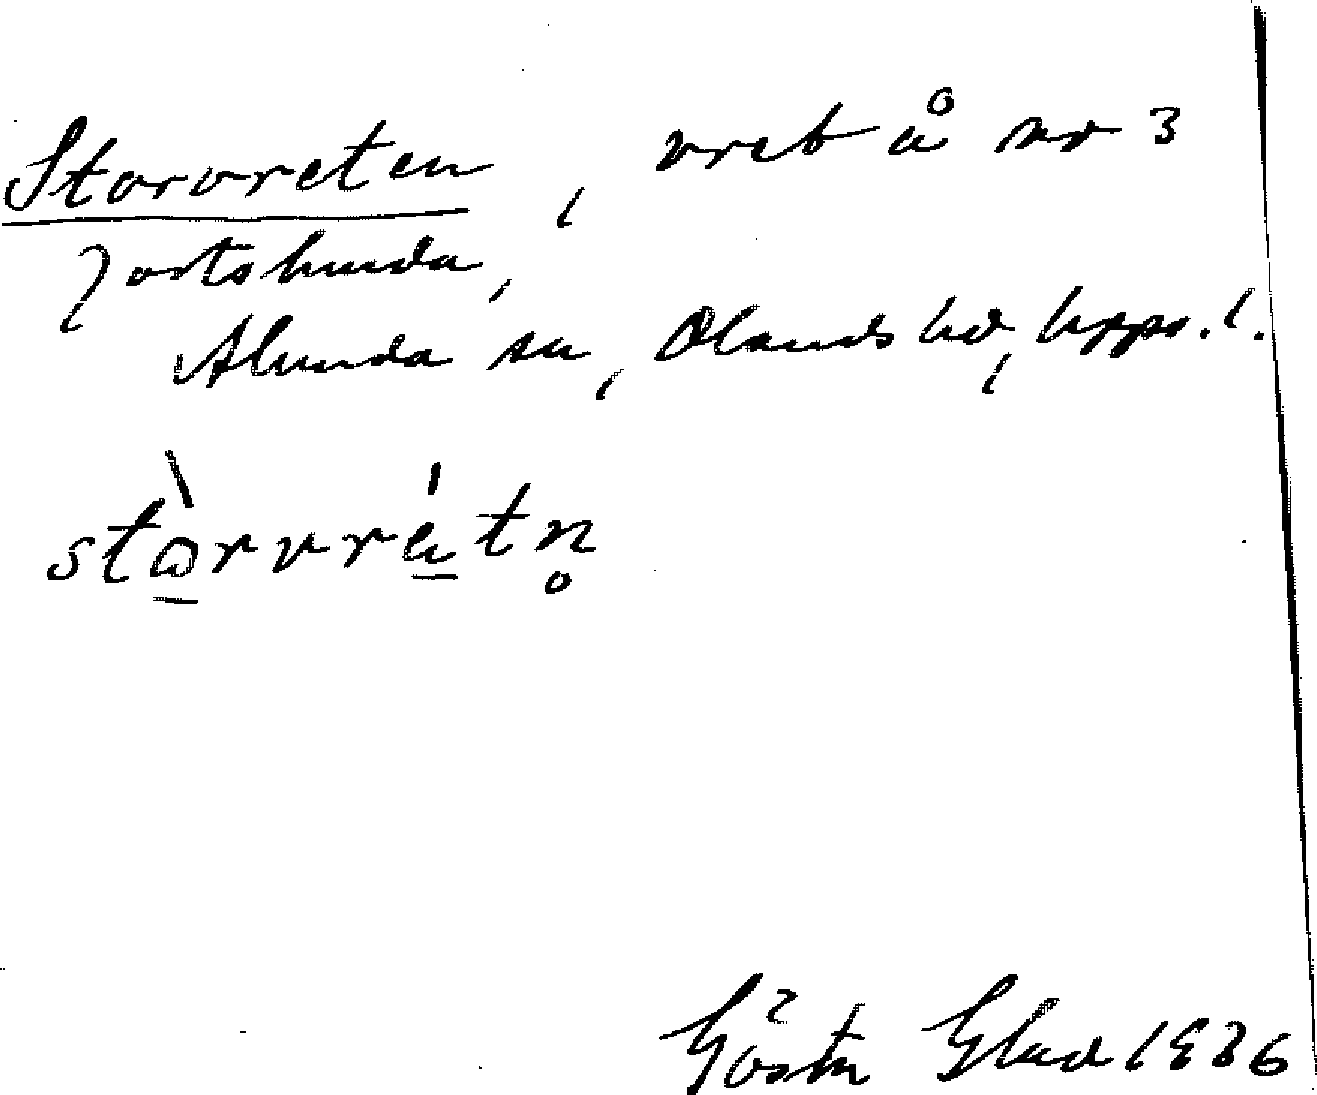 Storvreten, vret å nr 3
Jortshunda,
Alunda sn, Olands hd, Upps. l.
stòrvrétn̥
Gösta Glad 1936